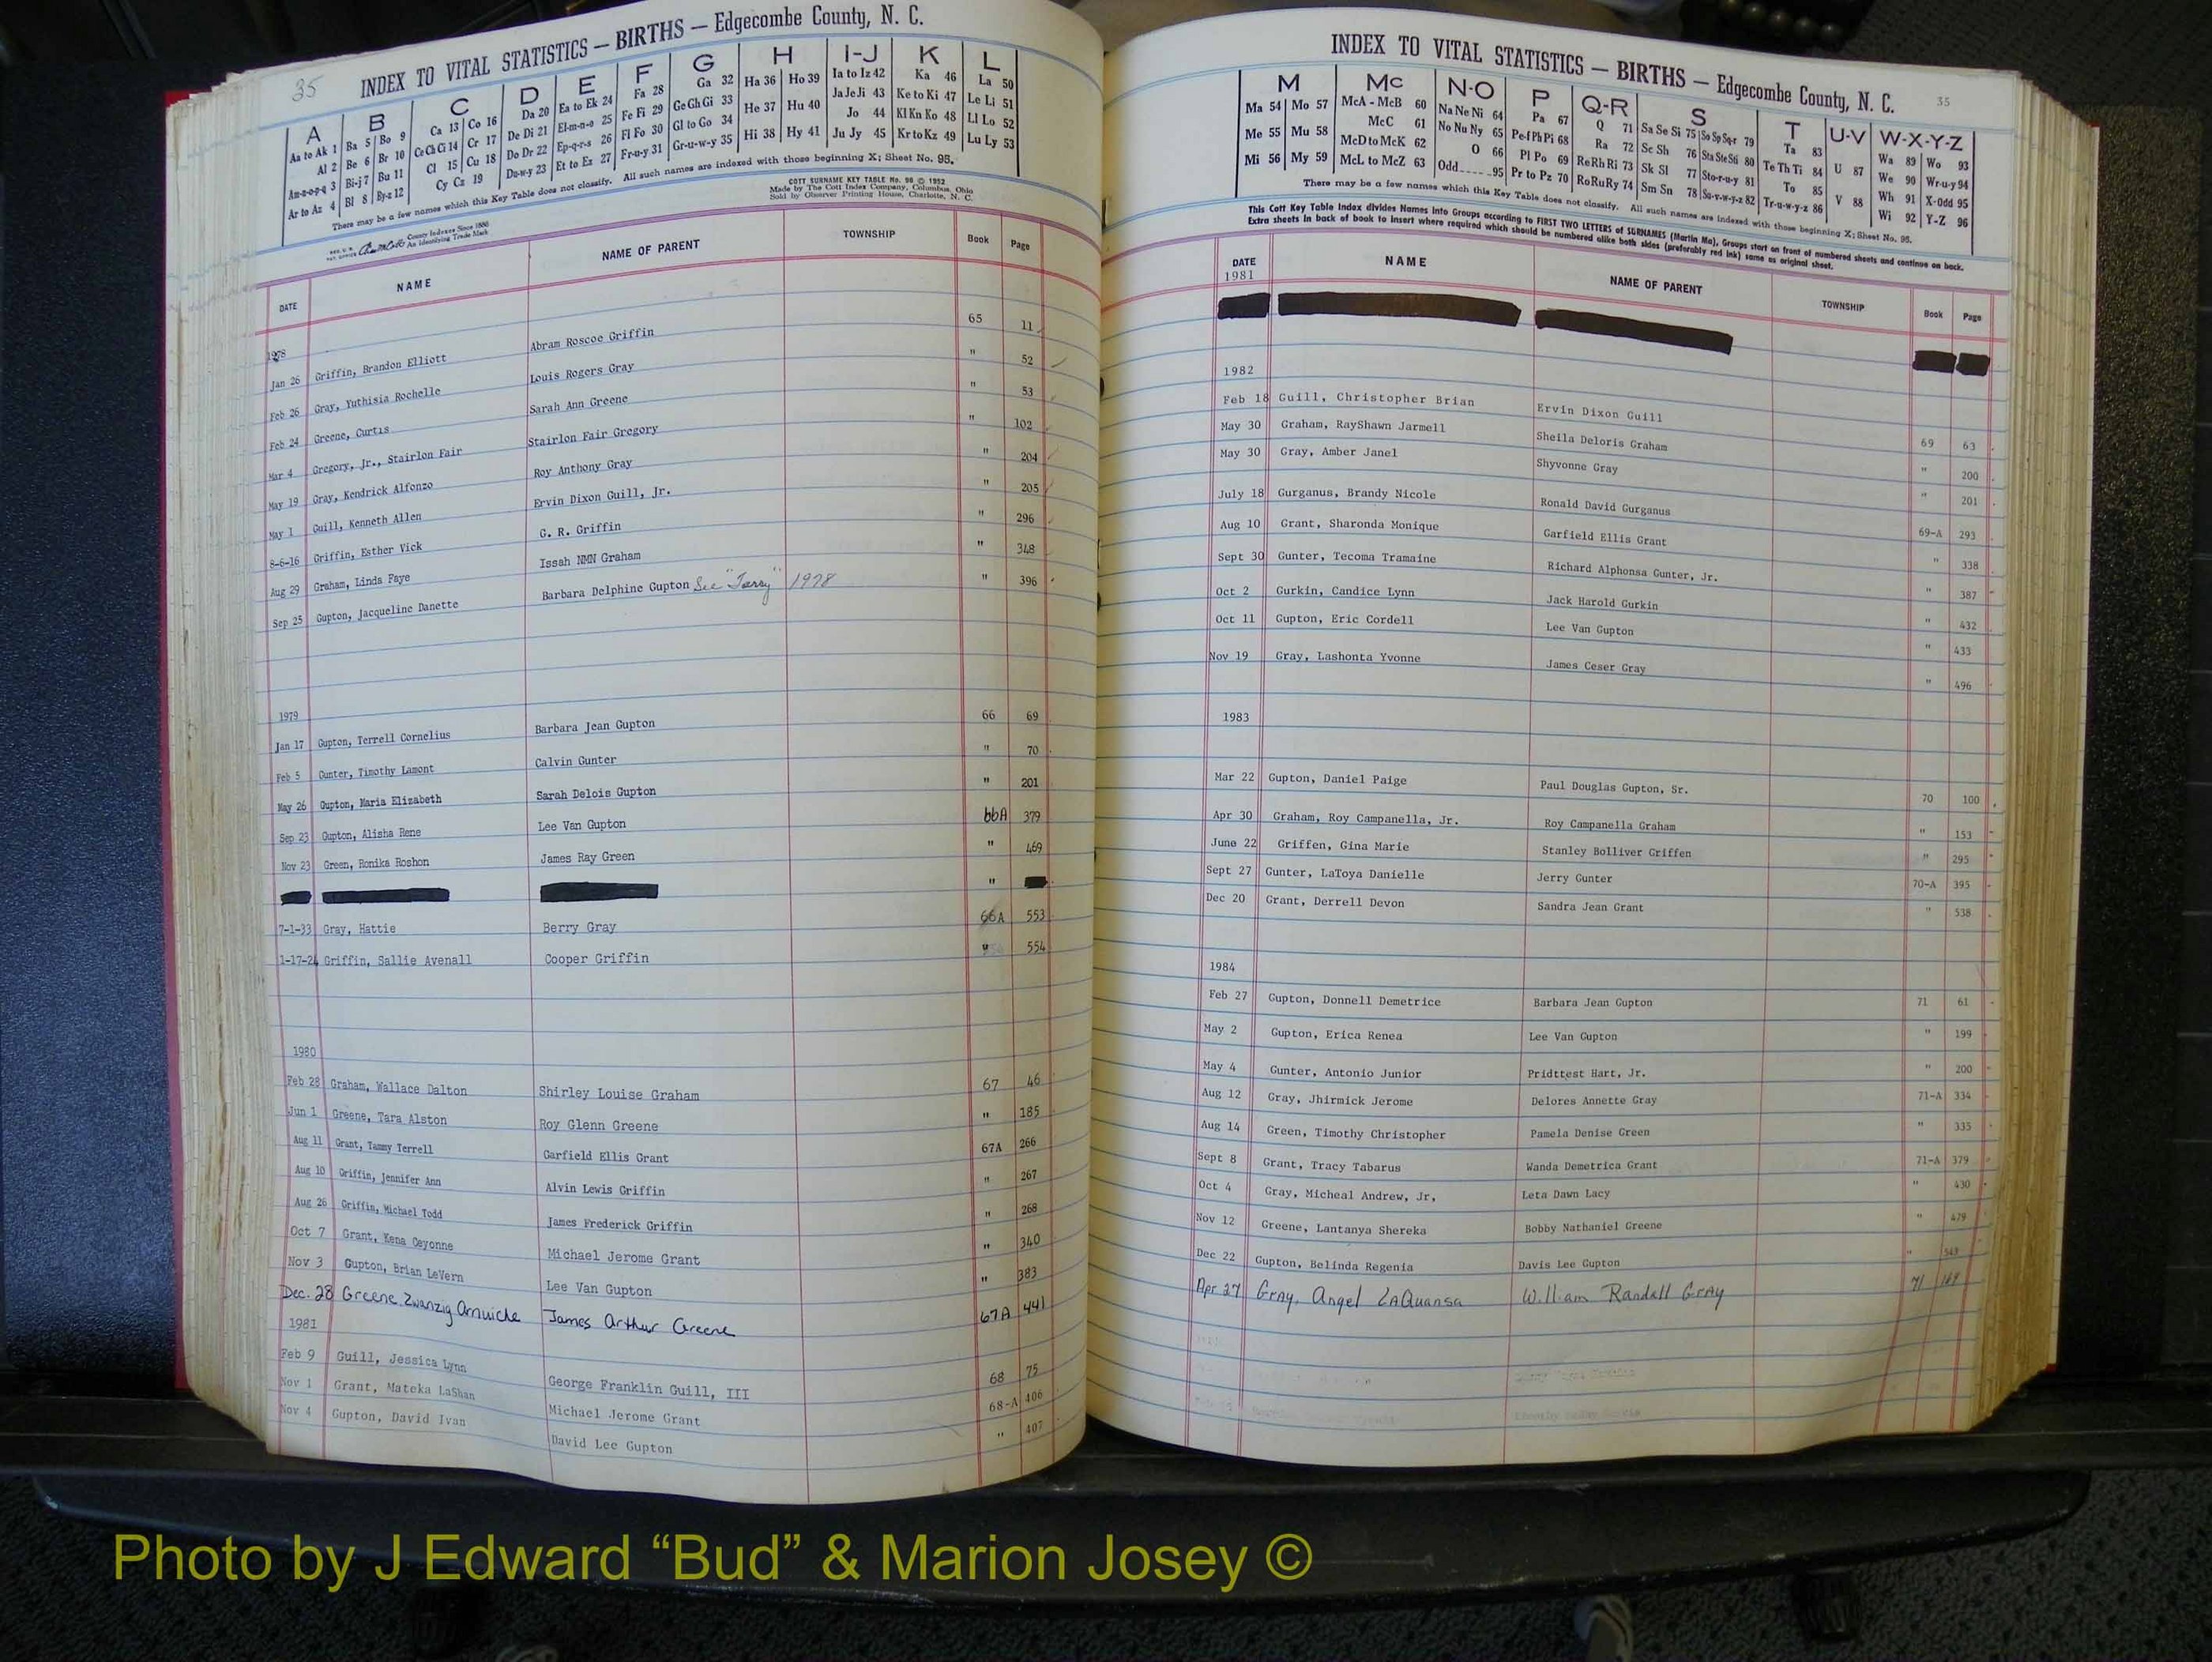 35
INDEX TO VITAL STATISTICS — BIRTHS — Edgecombe County, N. C.
A B C D E F G H I-J K L
Aa to Ak 1 Ba 5 Bo 9 Ca 13 Co 16 Da 20 Ea to Ek 24 Fa 28 Ga 32 Ha 36 Ho 39 Ia to Iz 42 Ka 46 La 50
Al 2 Be 6 Br 10 Ce Ch Ci 14 Cr 17 De Di 21 El-m-n-o 25 Fe Fi 29 Ge Gh Gi 33 He 37 Hu 40 Ja Je Ji 43 Ke to Ki 47 Le Li 51
Am-n-o-p-q 3 Bi-j 7 Bu 11 Cl 15 Cu 18 Do Dr 22 Ep-q-r-s 26 Fl Fo 30 Gl to Go 34 Hi 38 Hy 41 Jo 44 Kl Kn Ko 48 Ll Lo 52
Ar to Az 4 Bl 8 By-z 12 Cy Cz 19 Du-w-y 23 Et to Ez 27 Fr-u-y 31 Gr-u-w-y 35 Ju Jy 45 Kr to Kz 49 Lu Ly 53
There may be a few names which this Key Table does not classify. All such names are indexed with those beginning X; Sheet No. 95.
COTT SURNAME KEY TABLE No. 96 © 1952
Made by The Cott Index Company, Columbus, Ohio
Sold by Observer Printing House, Charlotte, N. C.
County Indexes Since 1888
An Identifying Trade Mark
DATE NAME NAME OF PARENT TOWNSHIP Book Page
1978
Jan 26 Griffin, Brandon Elliott Abram Roscoe Griffin 65 11
Feb 26 Gray, Yuthisia Rochelle Louis Rogers Gray " 52
Feb 24 Greene, Curtis Sarah Ann Greene " 53
Mar 4 Gregory, Jr., Stairlon Fair Stairlon Fair Gregory " 102
May 19 Gray, Kendrick Alfonzo Roy Anthony Gray " 204
May 1 Guill, Kenneth Allen Ervin Dixon Guill, Jr. " 205
8-6-16 Griffin, Esther Vick G. R. Griffin " 296
Aug 29 Graham, Linda Faye Issah NMN Graham " 348
Sep 25 Gupton, Jacqueline Danette Barbara Delphine Gupton See "Terry" 1978 " 396
1979
Jan 17 Gupton, Terrell Cornelius Barbara Jean Gupton 66 69
Feb 5 Gunter, Timothy Lamont Calvin Gunter " 70
May 26 Gupton, Maria Elizabeth Sarah Delois Gupton " 201
Sep 23 Gupton, Alisha Rene Lee Van Gupton 66A 379
Nov 23 Green, Ronika Roshon James Ray Green " 469
"
7-1-33 Gray, Hattie Berry Gray 66A 553
1-17-24 Griffin, Sallie Avenall Cooper Griffin " 554
1980
Feb 28 Graham, Wallace Dalton Shirley Louise Graham 67 46
Jun 1 Greene, Tara Alston Roy Glenn Greene " 185
Aug 11 Grant, Tammy Terrell Garfield Ellis Grant 67A 266
Aug 10 Griffin, Jennifer Ann Alvin Lewis Griffin " 267
Aug 26 Griffin, Michael Todd James Frederick Griffin " 268
Oct 7 Grant, Kena Ceyonne Michael Jerome Grant " 340
Nov 3 Gupton, Brian LeVern Lee Van Gupton " 383
Dec. 28 Greene, Zwanzig Arnuiche James Arthur Greene 67A 441
1981
Feb 9 Guill, Jessica Lynn George Franklin Guill, III 68 75
Nov 1 Grant, Mateka LaShan Michael Jerome Grant 68-A 406
Nov 4 Gupton, David Ivan David Lee Gupton " 407
INDEX TO VITAL STATISTICS — BIRTHS — Edgecombe County, N. C. 35
M Mc N-O P Q-R S T U-V W-X-Y-Z
Ma 54 Mo 57 McA - McB 60 Na Ne Ni 64 Pa 67 Q 71 Sa Se Si 75 So Sp Sq-r 79 Ta 83 U 87 Wa 89 Wo 93
Me 55 Mu 58 McC 61 No Nu Ny 65 Pe-f Ph Pi 68 Ra 72 Sc Sh 76 Sta Ste Sti 80 Te Th Ti 84 V 88 We 90 Wr-u-y 94
Mi 56 My 59 McD to McK 62 O 66 Pl Po 69 Re Rh Ri 73 Sk Sl 77 Sto-r-u-y 81 To 85 Wh 91 X-Odd 95
McL to McZ 63 Odd 95 Pr to Pz 70 Ro Ru Ry 74 Sm Sn 78 Su-v-w-y-z 82 Tr-u-w-y-z 86 Wi 92 Y-Z 96
There may be a few names which this Key Table does not classify. All such names are indexed with those beginning X; Sheet No. 95.
This Cott Key Table Index divides Names into Groups according to FIRST TWO LETTERS of SURNAMES (Martin Ma). Groups start on front of numbered sheets and continue on back.
Extra sheets in back of book to insert where required which should be numbered alike both sides (preferably red ink) same as original sheet.
DATE NAME NAME OF PARENT TOWNSHIP Book Page
1981
1982
Feb 18 Guill, Christopher Brian Ervin Dixon Guill 69 63
May 30 Graham, RayShawn Jarmell Sheila Deloris Graham " 200
May 30 Gray, Amber Janel Shyvonne Gray " 201
July 18 Gurganus, Brandy Nicole Ronald David Gurganus 69-A 293
Aug 10 Grant, Sharonda Monique Garfield Ellis Grant " 338
Sept 30 Gunter, Tecoma Tramaine Richard Alphonsa Gunter, Jr. " 387
Oct 2 Gurkin, Candice Lynn Jack Harold Gurkin " 432
Oct 11 Gupton, Eric Cordell Lee Van Gupton " 433
Nov 19 Gray, Lashonta Yvonne James Ceser Gray " 496
1983
Mar 22 Gupton, Daniel Paige Paul Douglas Gupton, Sr. 70 100
Apr 30 Graham, Roy Campanella, Jr. Roy Campanella Graham " 153
June 22 Griffen, Gina Marie Stanley Bolliver Griffen " 295
Sept 27 Gunter, LaToya Danielle Jerry Gunter 70-A 395
Dec 20 Grant, Derrell Devon Sandra Jean Grant " 538
1984
Feb 27 Gupton, Donnell Demetrice Barbara Jean Gupton 71 61
May 2 Gupton, Erica Renea Lee Van Gupton " 199
May 4 Gunter, Antonio Junior Pridttest Hart, Jr. " 200
Aug 12 Gray, Jhirmick Jerome Delores Annette Gray 71-A 334
Aug 14 Green, Timothy Christopher Pamela Denise Green " 335
Sept 8 Grant, Tracy Tabarus Wanda Demetrica Grant 71-A 379
Oct 4 Gray, Micheal Andrew, Jr, Leta Dawn Lacy " 430
Nov 12 Greene, Lantanya Shereka Bobby Nathaniel Greene " 479
Dec 22 Gupton, Belinda Regenia Davis Lee Gupton " 543
Apr 27 Gray, Angel LaQuansa William Randall Gray 71 169
Photo by J Edward “Bud” & Marion Josey ©